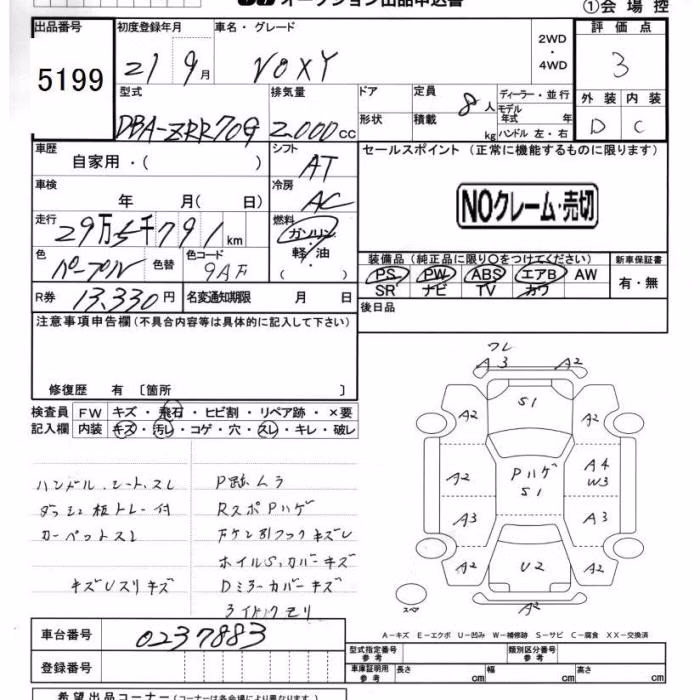 オークション出品申込書
①会場控
出品番号 初度登録年月 車名・グレード 2WD・4WD 評価点
5199 21 9月 VOXY 3
型式 排気量 ドア 定員 8人 ディーラー・並行 外装 内装
DBA-ZRR70G 2.000cc 形状 積載 kg モデル年式 年 ハンドル 左・右 D C
車歴 自家用・( ) シフト AT セールスポイント(正常に機能するものに限ります)
車検 年 月( 日) 冷房 AC NOクレーム・売切
走行 29万5千791km 燃料 ガソリン・軽油・( )
色 パープル 色替 色コード 9AF
装備品(純正品に限り○をつけてください) 新車保証書
PS PW ABS エアB AW 有・無
SR ナビ TV カワ
R券 13,330円 名変通知期限 月 日 後日品
注意事項申告欄(不具合内容等は具体的に記入して下さい)
修復歴 有〔箇所 〕
検査員 FW キズ・飛石・ヒビ割・リペア跡・×要
記入欄 内装 キズ・汚レ・コゲ・穴・スレ・キレ・破レ
ハンドル、シート、スレ P跡ムラ
ダッシュ板トレー付 RスポPハゲ
カーペットスレ キズレ
ホイルS、カバーキズ
キズUスリキズ Dミラーカバーキズ
ワレ
A3 A2
A2 S1 A2
A2 Pハゲ S1 A4 W3
A3 A3
A2 U2 A2
スペア A2
A-キズ E-エクボ U-凹み W-補修跡 S-サビ C-腐食 XX-交換済
車台番号 0237883
登録番号
型式指定番号 参考 類別区分番号 参考
車庫証明用 参考 長さ cm 幅 cm 高さ cm
希望出品コーナー(コーナーは各会場により異なります)